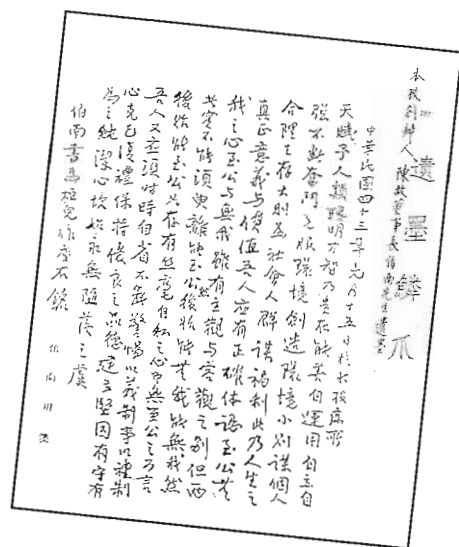 本校創辦人陳故董事長伯南先生遺墨
遺墨鱗爪
中華民國四十三年元月十五日於本校
天賦予人類聰明才智乃貴在能善自運用自立自
強不斷奮鬥克服環境創造環境小則謀個人
合理生存大則為社會人群謀福利此乃人生之
真正意義與價值吾人應有正確体認至公無
我之心至公與無我雖有主觀與客觀之別但兩
者實不能須臾離能至公然後始能無我能無我然
後始能至公只存有絲毫自私之心即無至公之可言
吾人又並須時時自省不斷警惕以義制事以禮制
心克己復禮保持優良之品德建立堅固有守有
為之純潔心始永無隨落之虞
伯南書為極兒作座右銘
伯南用箋